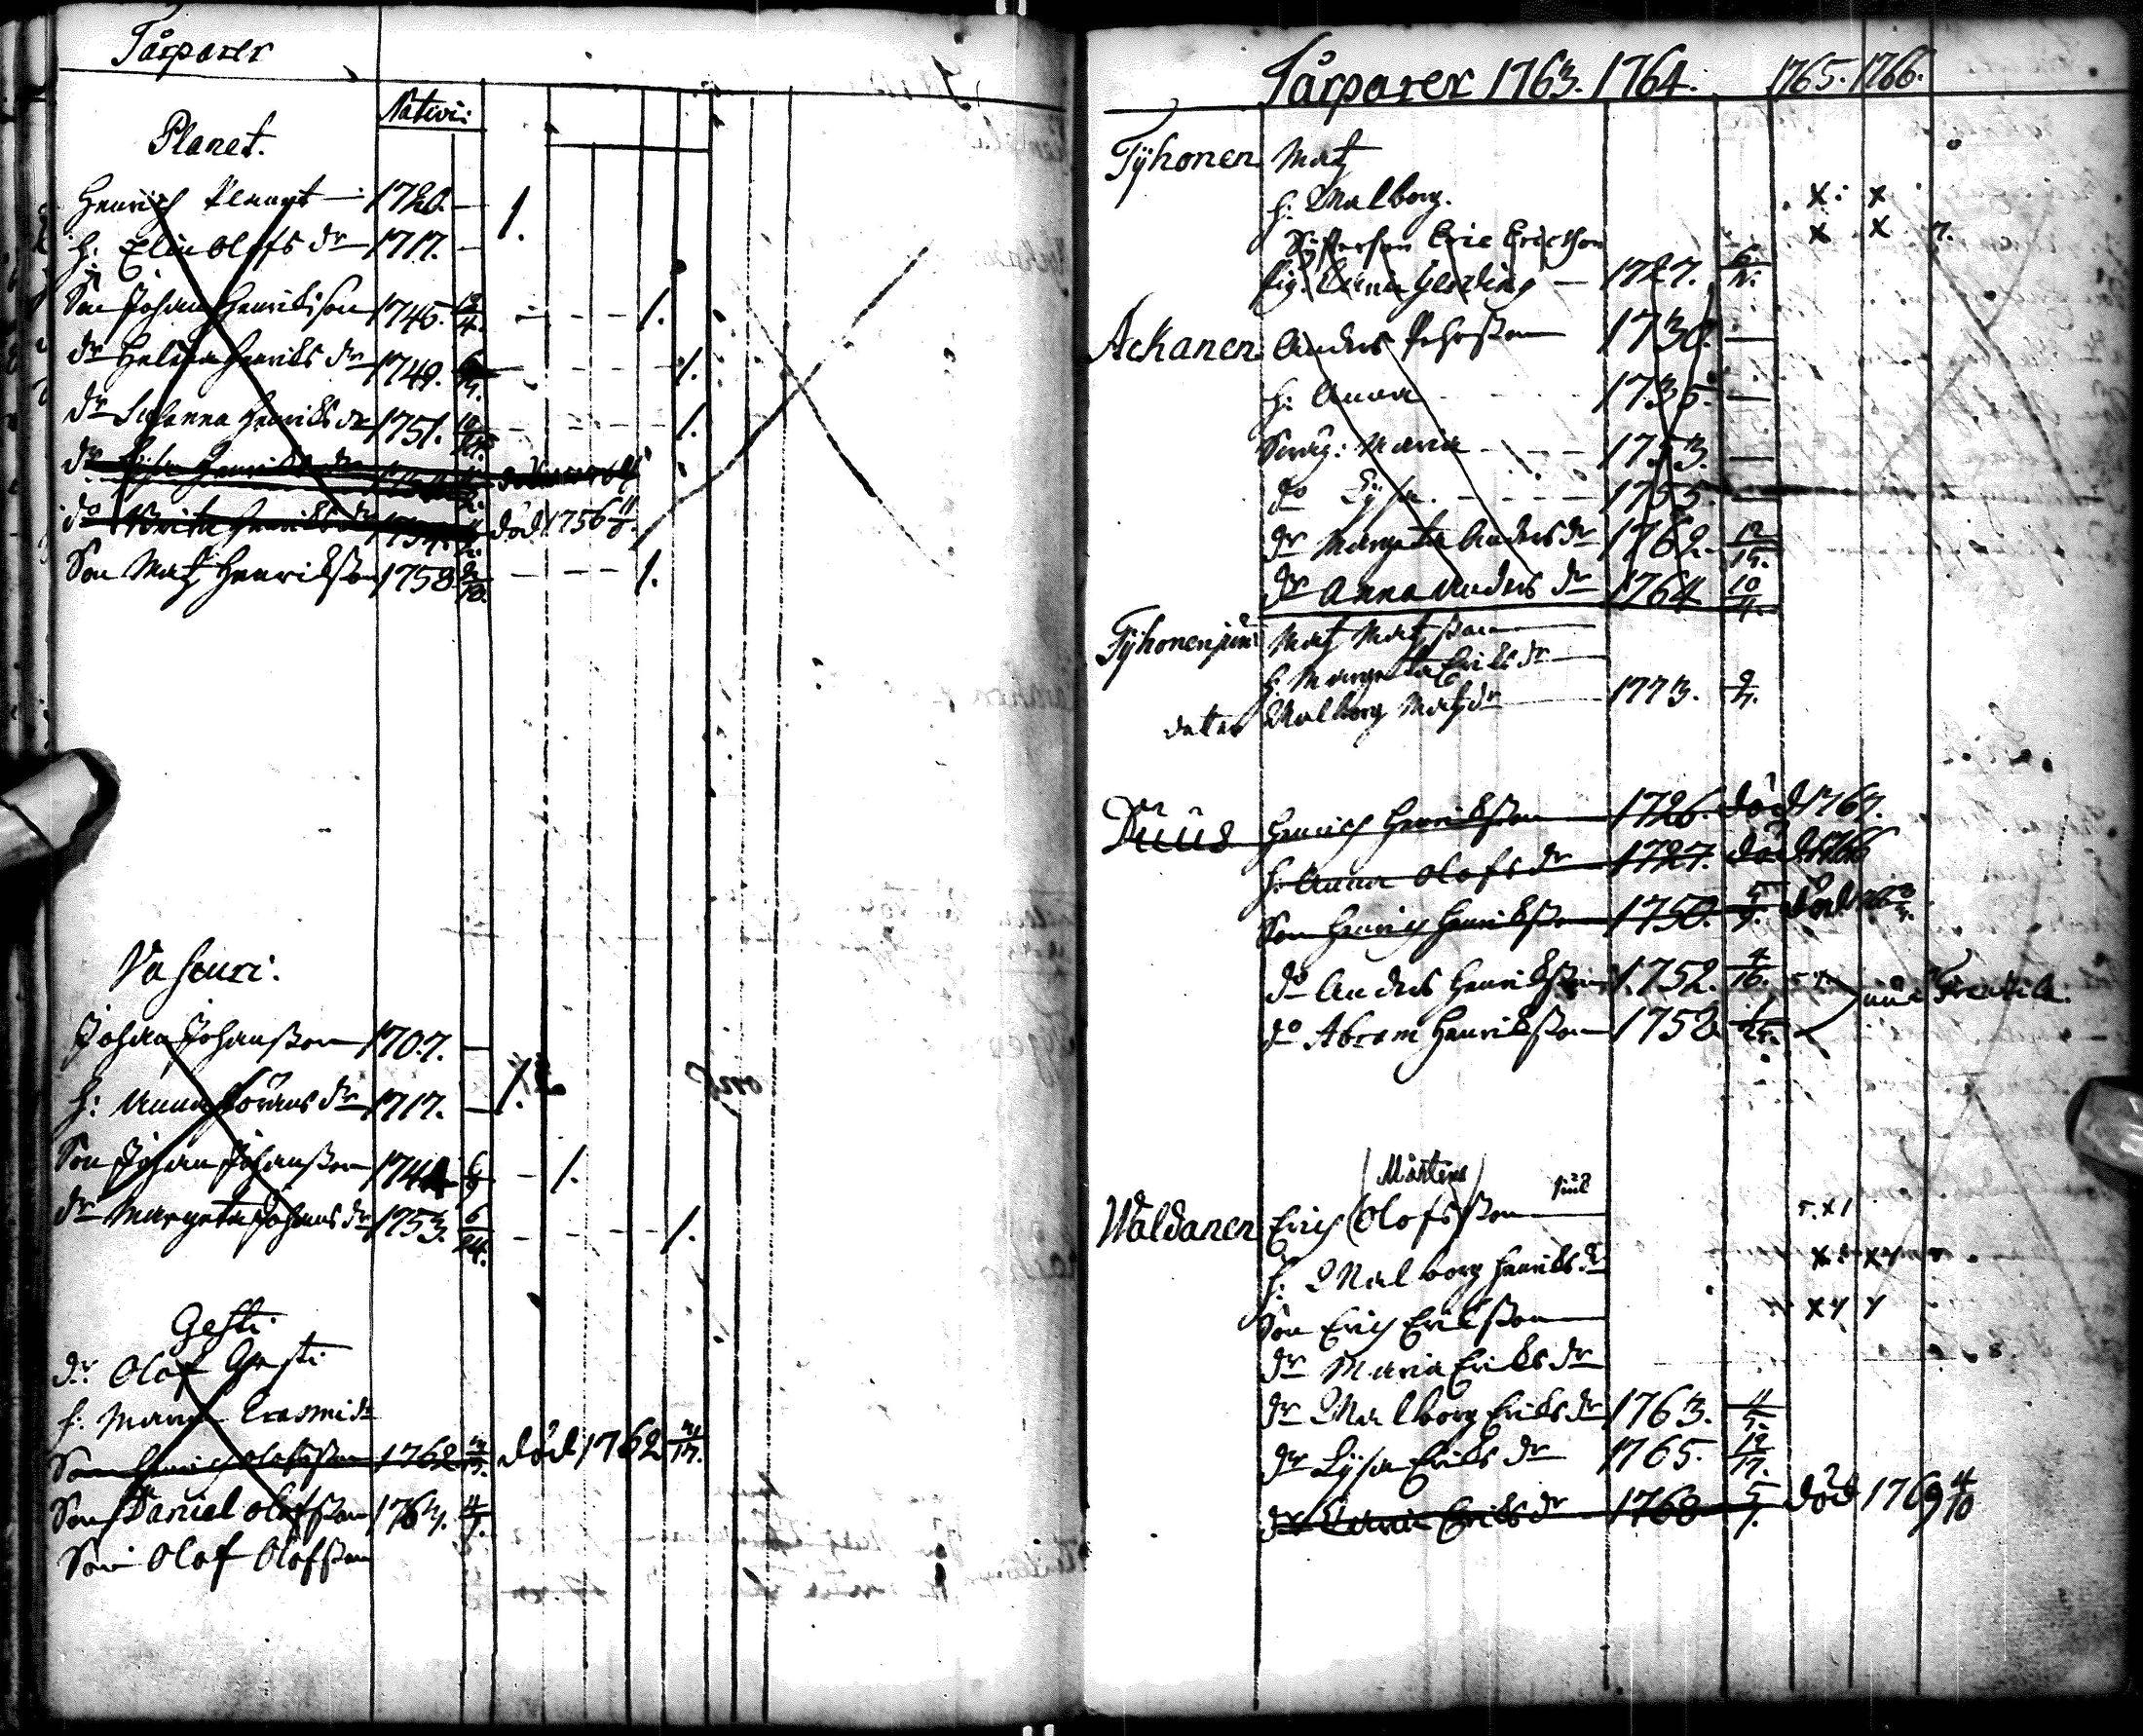 Tårparer
Nativi:
Planet.
Henrich Planet — 1720. — 1.
h: Elin Olofs dr 1717. —
Son Johan Henrichson 1746. 4. 1.
dr Helena Henriks dr 1749. 1.
dr Susanna Henriks dr 1751. 10 1.
dr Lisa Henriks dr
do Brita Henriks dr 1754. död 1756
Son Matz Henrichsson 1758 10. 1.
Vasenri.
Johan Johansson 1707. —
h: Anna Görans dr 1717. — 1.
Son Johan Johansson 1744 1.
dr Margeta Johans dr 1753. 6/24. 1.
Gesti
dr Olof Gesti
h: Maria Erasmi dr
Son Henrich Olofsson 1762 död 1762
Son Daniel Olofsson 1763. 4/7.
Son Olof Olofsson
Tårparer 1763. 1764. 1765. 1766.
Tÿhonen Matz
h: Walborg. x x
Eric Ericsson x x 7.
1727. 6
Ackanen Anders Pehrsson 1730. —
h: Anna 1735. —
Swäg: Maria 1753. —
do Lÿsa 1755. —
dr Margeta Anders dr 1762. 12/15.
dr Anna Anders dr 1764 10/4.
Tÿhonen jun: Matz Matzson
h: Margeta Eriks dr
dotter Walborg Matz dr 1773. 9/7.
Duus Henrich Henrichsson 1726. död 1767.
h: Anna Olofs dr 1727. död 1766
Son Henrich Henrichsson 1750. 5/9. död
do Anders Henrichsson 1752. 4/16.
do Abram Henrichsson 1758
(Mårtens)
Waldanen Erich Olofsson
h: Walborg Henriks dr
Son Erich Ericsson
dr Maria Eriks dr
dr Walborg Eriks dr 1763. 4/5.
dr Lÿsa Eriks dr 1765. 12/17.
dr Maria Eriks dr 1768 5/1. död 1769 4/10